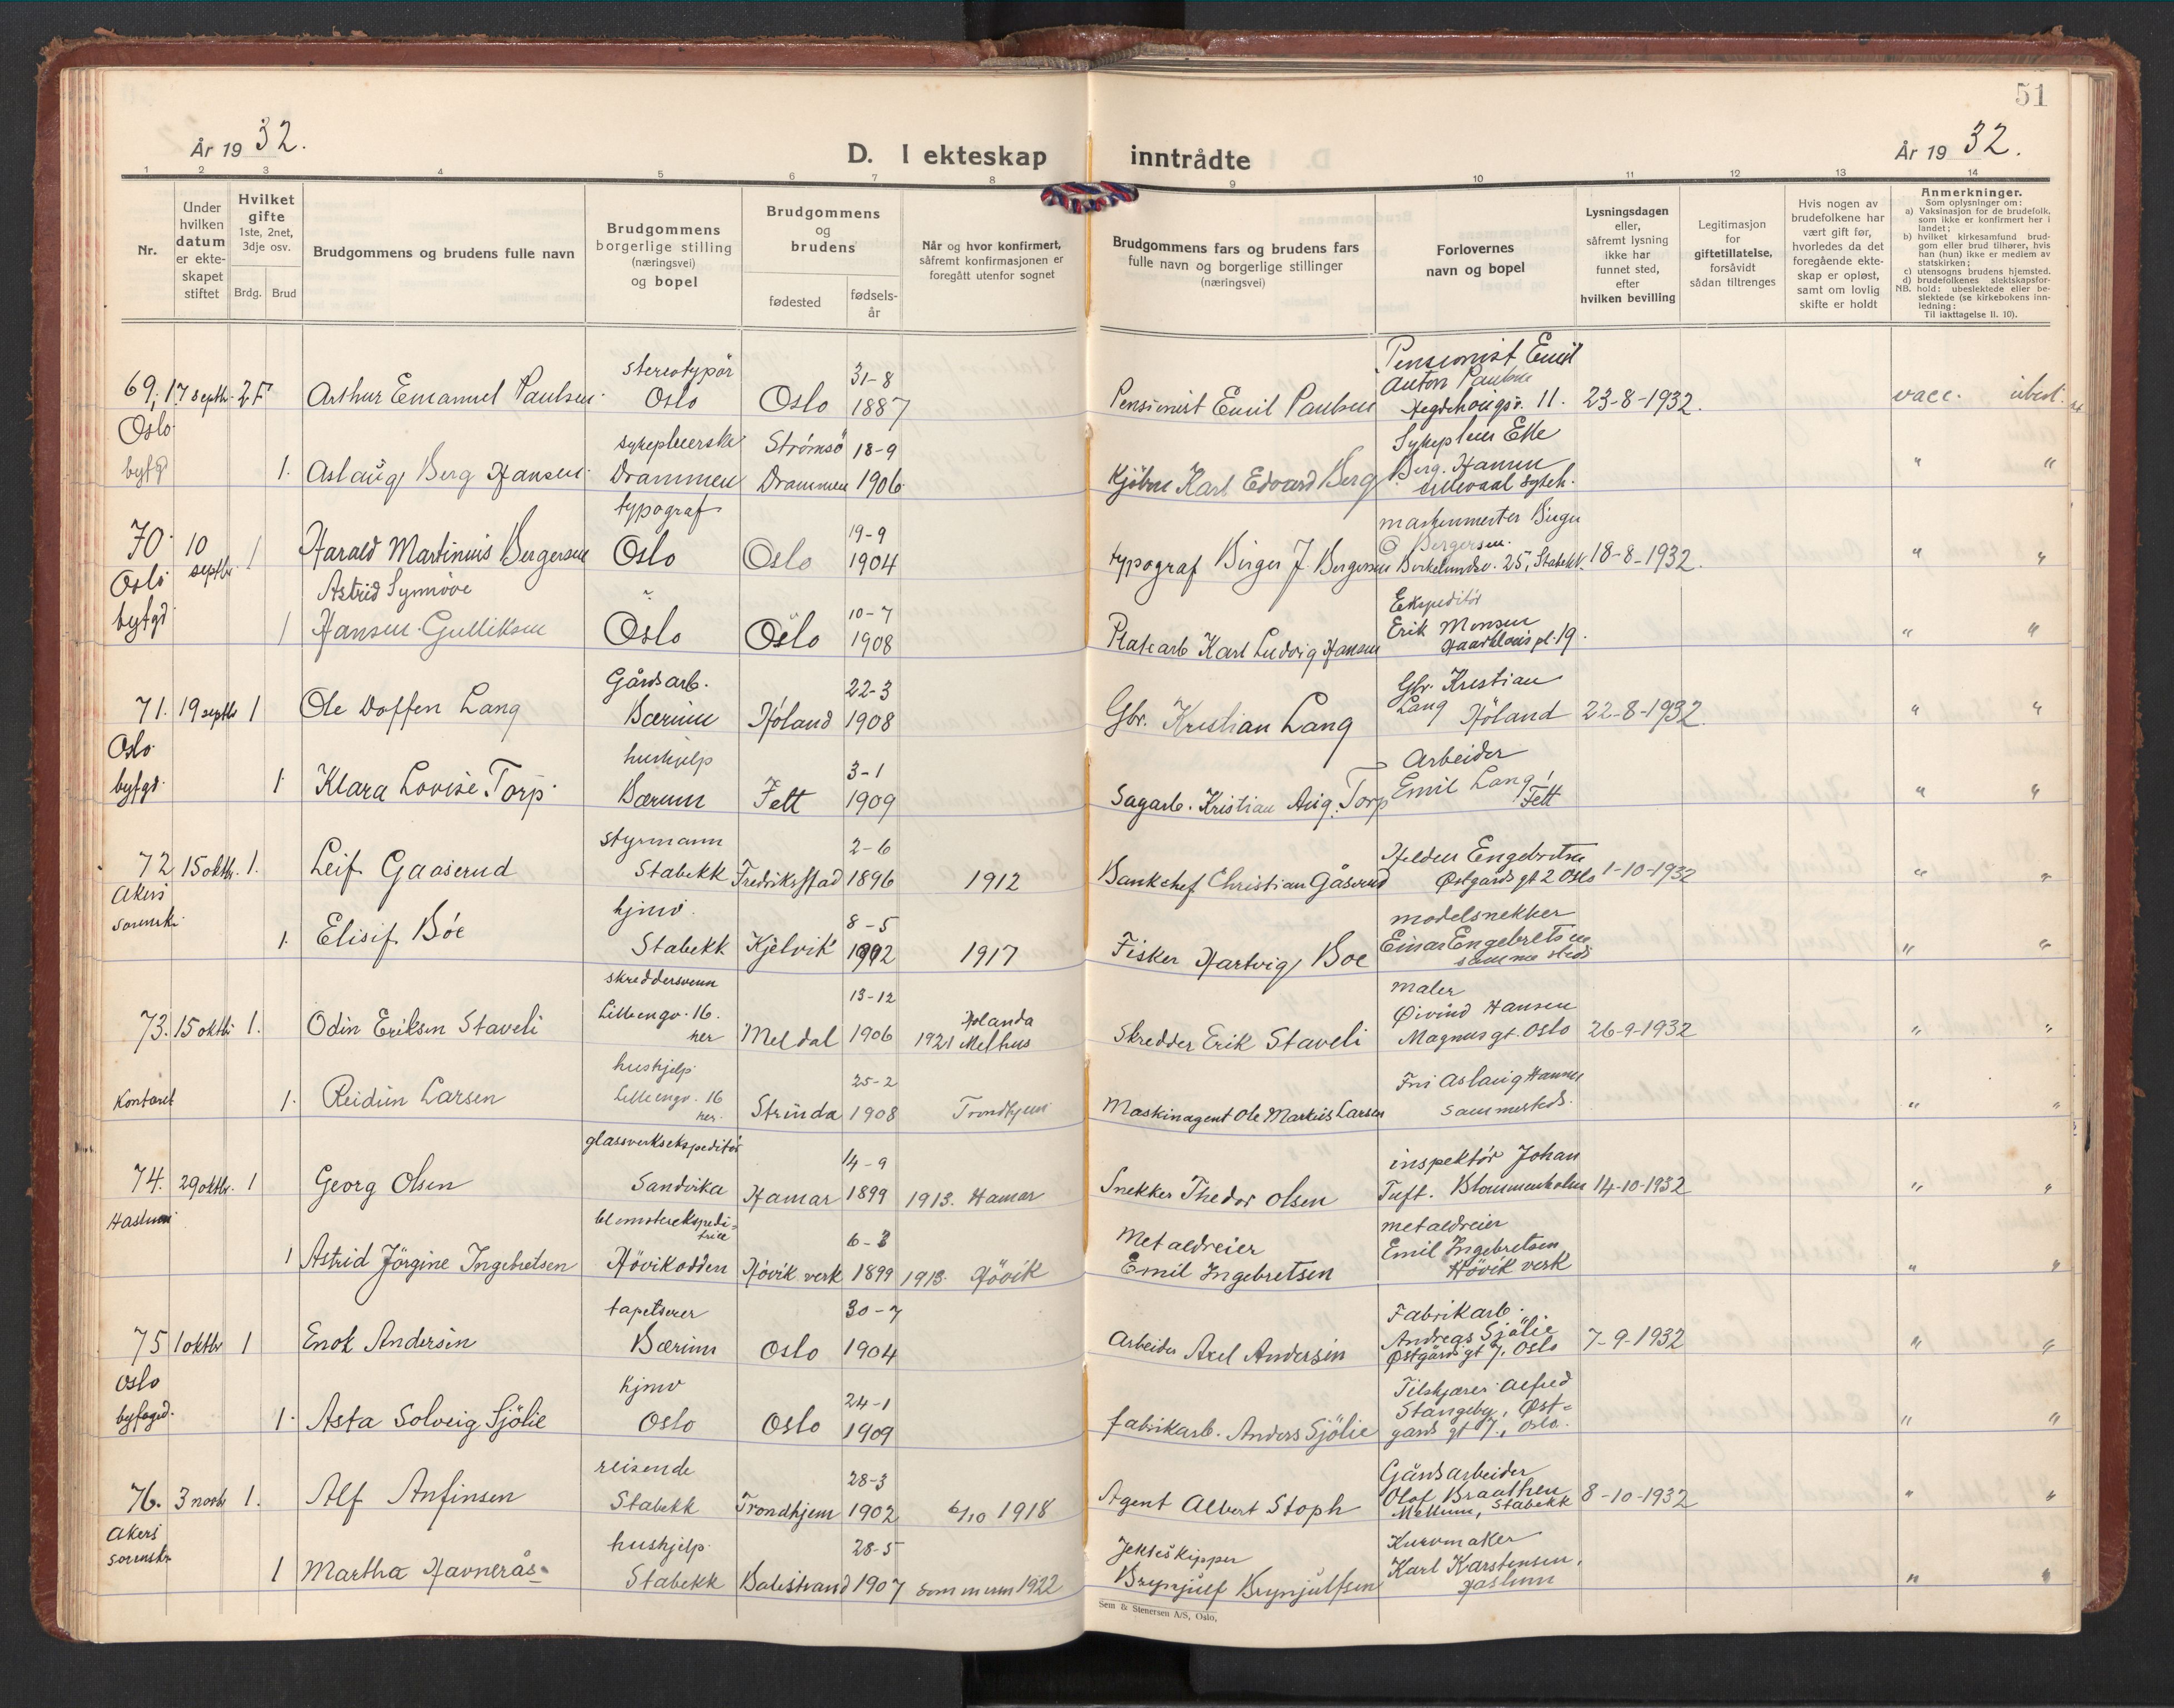 51
År 1932.
D. I ekteskap inntrådte
År 1932.
1 2 3 4 5 6 7 8 9 10 11 12 13 14
Nr.
Under hvilken datum er ekteskapet stiftet
Hvilket gifte 1ste, 2net, 3dje osv.
Brdg. Brud
Brudgommens og brudens fulle navn
Brudgommens borgerlige stilling (næringsvei) og bopel
Brudgommens og brudens
fødested
fødselsår
Når og hvor konfirmert, såfremt konfirmasjonen er foregått utenfor sognet
Brudgommens fars og brudens fars fulle navn og borgerlige stillinger (næringsvei)
Forlovernes navn og bopel
Lysningsdagen eller, såfremt lysning ikke har funnet sted, efter hvilken bevilling
Legitimasjon for giftetillatelse, forsåvidt sådan tiltrenges
Hvis nogen av brudefolkene har vært gift før, hvorledes da det foregående ekteskap er opløst, samt om lovlig skifte er holdt
Anmerkninger.
Som oplysninger om:
a) Vaksinasjon for de brudefolk, som ikke er konfirmert her i landet;
b) hvilket kirkesamfund brudgom eller brud tilhører, hvis han (hun) ikke er medlem av statskirken;
c) utensogns brudens hjemsted.
d) brudefolkenes slektskapsforhold: ubeslektede eller beslektede (se kirkebokens innledning:
NB. Til iakttagelse II. 10).
69, 17 septb. 2 F Arthur Emanuel Paulsen stereotypør Oslo Oslo 31-8 1887 Pensionist Emil Paulsen Pensionist Emil Anton Paulsen 11. 23-8-1932. vacc. ubesl.
Oslo byfgd 1. Aslaug Berg Hansen sykepleierske Drammen Strømsø Drammen 18-9 1906 Karl Edvard Berg Berg. Hansen " "
70 10 septbr. 1 Harald Martinius Bergersen typograf Oslo Oslo 19-9 1904 typograf Birger J. Bergersen Birger Bergersen 25, Stabekk 18-8-1932. " "
Oslo byfgd 1 Astrid Synnöve Hansen-Gulliksen Oslo Oslo 10-7 1908 Platearb Karl Ludvig Hansen Ekspeditör Erik Monsen pl. 19. " "
71. 19 septbr 1 Ole Doffen Lang Gårdsarb. Bærum Höland 22-3 1908 Gbr. Kristian Lang Gbr. Kristian Lang Höland 22-8-1932. " "
Oslo byfgd. 1 Klara Lovise Torp hushjelp Bærum Fett 3-1 1909 Sagarb. Kristian Aug. Torp Arbeider Emil Lang, Fett " "
72 15 oktbr. 1. Leif Gaaserud styrmann Stabekk Fredrikstad 2-6 1896 1912 Bankchef Christian Gåserud Engebretsen Østgårds gt 2 Oslo 1-10-1932 " "
Akers sorenskr. 1. Elisif Bóe hjmv. Stabekk Kjelvik 8-5 1902 1917 Fisker Hartvig Boe modelsnekker Einar Engebretsen samme sted " "
73. 15 oktbr 1. Odin Eriksen Staveli skreddersvenn Lilleengv. 16. her Meldal 13-12 1906 1921 Melhus Skredder Erik Staveli maler Øivind Hansen Magnusgt. Oslo 26-9-1932 " "
Kontoret 1. Reidun Larsen hushjelp Lilleengv. 16 her. Strinda 25-2 1908 Trondhjem Maskinagent Ole Markus Larsen Fru Aslaug Hansen sammesteds. " "
74. 29 oktbr. 1 Georg Olsen glassverksekspeditör Sandvika Hamar 14-9 1899 1913. Hamar Snekker Thedor Olsen inspektör Johan Tuft. Blommenholm 14-10-1932 " "
Haslum 1 Astrid Jörgine Ingebretsen blomsterekspeditrice Hövikodden Hövik verk 6-3 1899 1913. Hövik Metaldreier Emil Ingebretsen metaldreier Emil Ingebretsen Hövik verk " "
75 1 oktbr 1 Enok Andersen tapetserer Bærum Oslo 30-7 1904 Arbeider Axel Andersen Fabrikarb. Andreas Sjölie Østgårdsgt 7, Oslo 7-9-1932 " "
Oslo byfogd. 1. Asta Solveig Sjölie hjmv Oslo Oslo 24-1 1909 fabrikarb. Anders Sjölie Tilskjærer Alfred Stangeby, Østgårds gt 7, Oslo. " "
76. 3 novbr 1. Alf Anfinsen reisende Stabekk Trondhjem 28-3 1902 6/10 1918 Agent Albert Stoph Gårdsarbeider Olof Braathen Stabekk 8-10-1932 " "
Akers sorenskr. 1 Martha Havnerås hushjelp Stabekk Balestrand 28-5 1907 sommeren 1922 Jekteskipper Brynjulf Brynjulfsen Kurvmaker Karl Karstensen, Haslum " "
Sem & Stenersen A/S, Oslo.